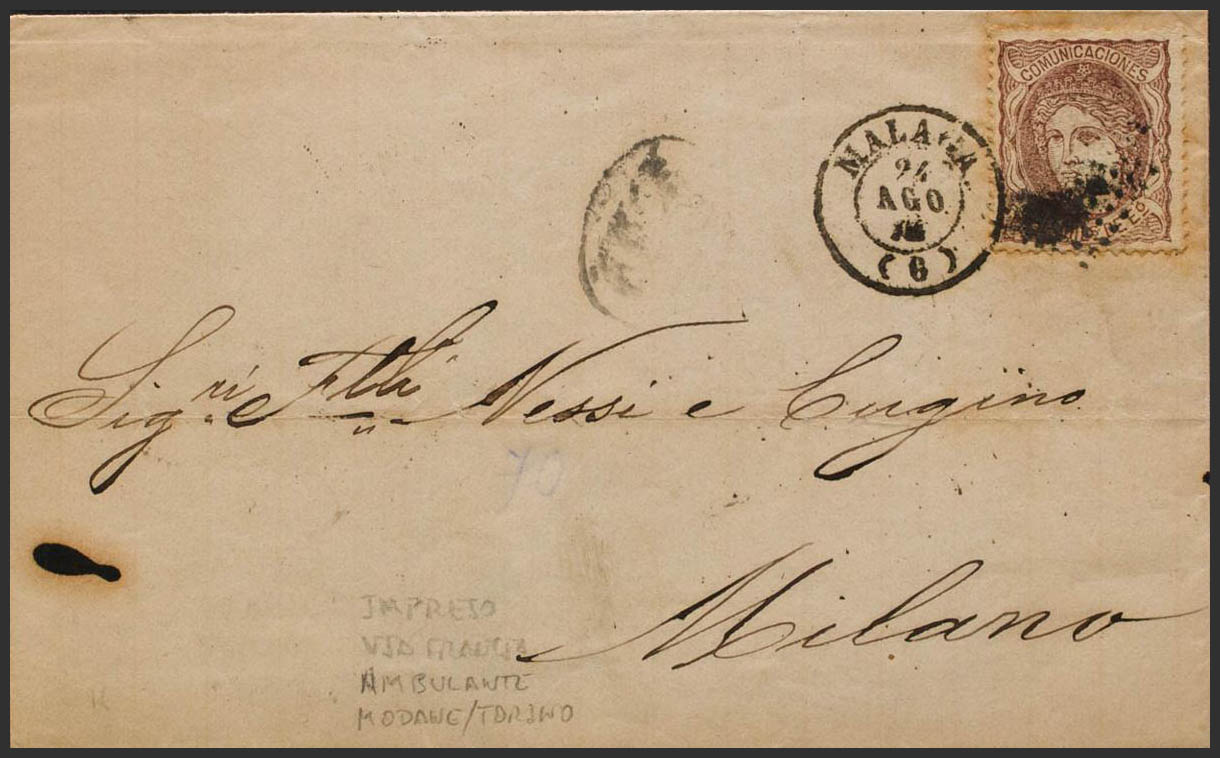 COMUNICACIONES
MALAGA
24
AGO
(6)
Sig.ri Flli Nessi e Cugino
70
Milano
IMPRESO
VIA FRANCIA
AMBULANTE
MODANE/TORINO